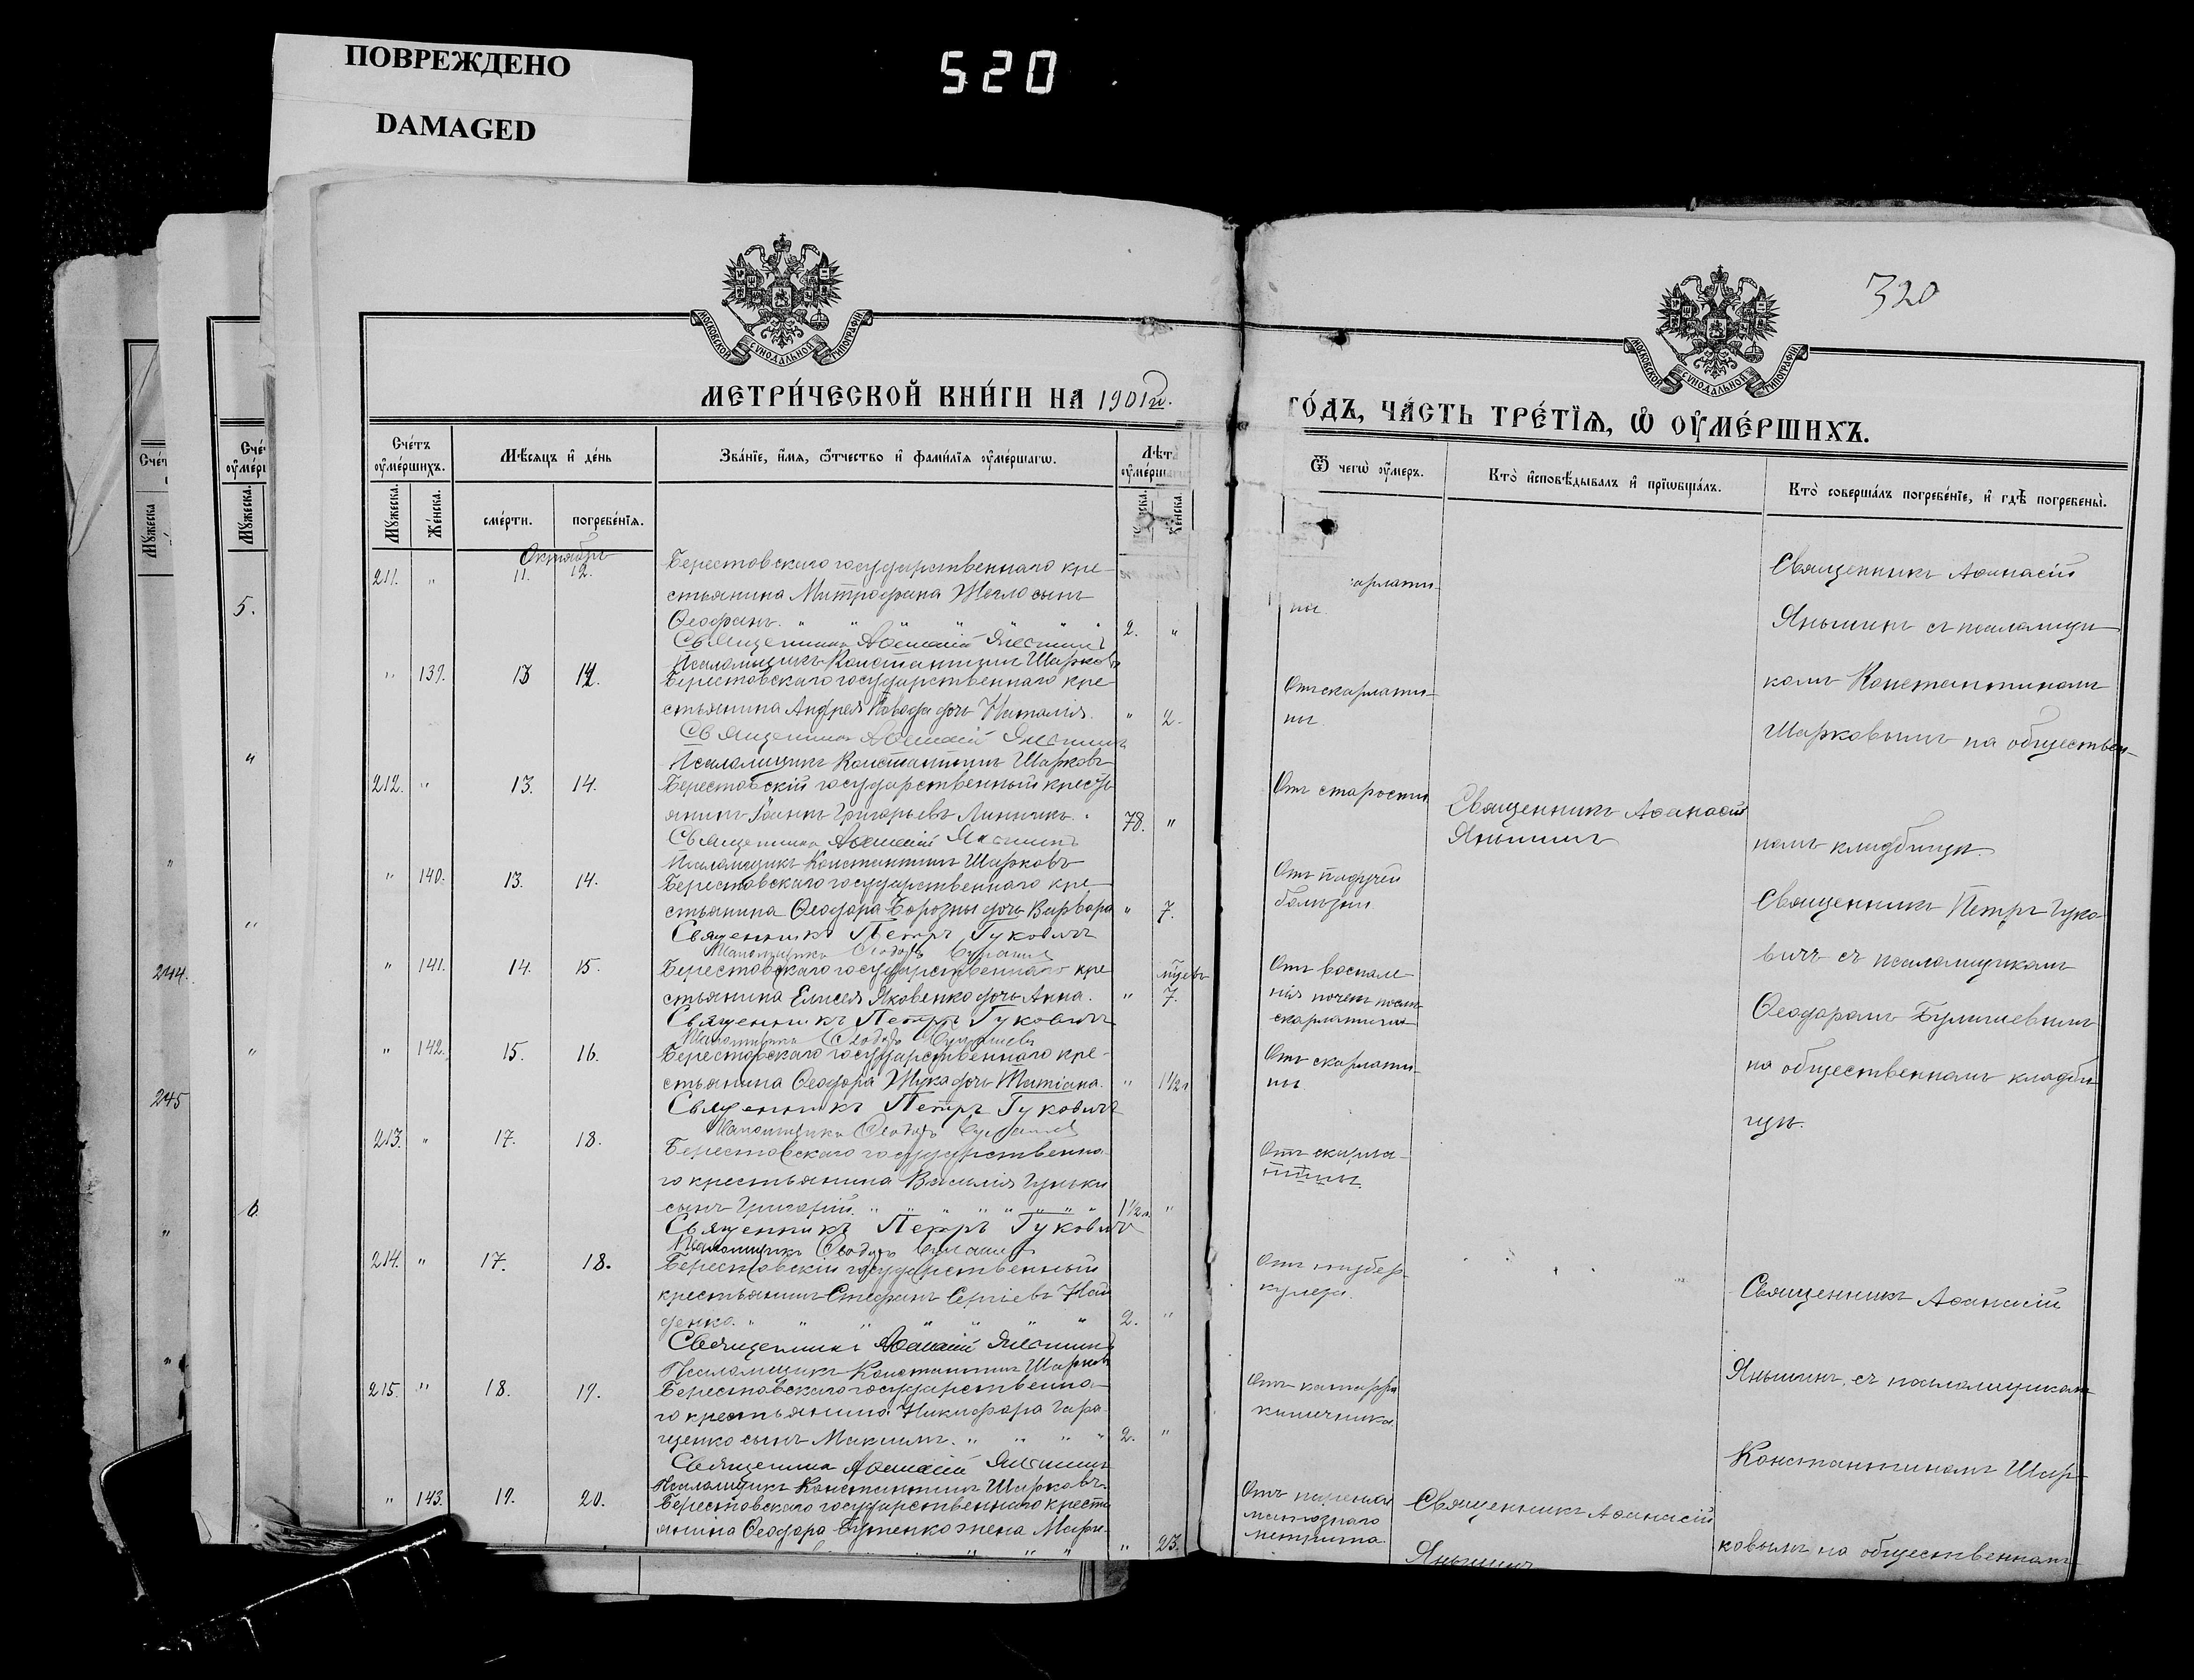 ПОВРЕЖДЕНО
DAMAGED
520
320
МОСКОВСКОЙ СУНОДАЛЬНОЙ ТИПОГРАФІИ
МОСКОВСКОЙ СУНОДАЛЬНОЙ ТИПОГРАФІИ
МЕТРИ́ЧЕСКОЙ КНИ́ГИ НА 1901 й.
ГО́ДЪ, ЧА́СТЬ ТРЕ́ТІѦ, Ѽ ОУ҆МЕ́РШИХЪ.
Сче́тъ оу҆ме́ршихъ.
Мѣ́сяцъ и҆ де́нь
Зва́нїе, и҆́мя, ѻ҆́тчество и҆ фами́лїя оу҆ме́ршагѡ.
Лѣ́та оу҆ме́ршагѡ
Ѿ чегѡ̀ оу҆́меръ.
Кто̀ и҆сповѣ́дывалъ и҆ прїѡбща́лъ.
Кто̀ соверша́лъ погребе́нїе, и҆ гдѣ̀ погребены̀.
Мꙋ́жеска.
Же́нска.
сме́рти.
погребе́нїя.
Же́нска.
Октябрь
211. " 11. 12.
Берестовскаго государственнаго кре-
стьянина Митрофана Жогло сынъ
Ѳеофанъ. " " " " " 2. "
Священникъ Аѳанасій Яньшинъ
Псаломщикъ Константинъ Шарковъ
арлати-
ны.
Священникъ Аѳанасій
Яньшинъ съ псаломщи-
комъ Константиномъ
Шарковымъ на обществен-
номъ кладбищѣ.
" 139. 13 14.
Берестовскаго государственнаго кре-
стьянина Андрея дочь Наталія. " 2.
Священникъ Аѳанасій Яньшинъ
Псаломщикъ Константинъ Шарковъ
Отъ скарлати-
ны
212. " 13. 14.
Берестовскій государственный кресть-
янинъ Іоаннъ Григорьевъ Линникъ. " 78. "
Священникъ Аѳанасій Яньшинъ
Псаломщикъ Константинъ Шарковъ
Отъ старости
Священникъ Аѳанасій
Яньшинъ
" 140. 13. 14.
Берестовскаго государственнаго кре-
стьянина Ѳеодора Борозны дочь Варвара " 7.
Священникъ Петръ Гуковичъ
Псаломщикъ Ѳеодоръ
Отъ падучей
болѣзни
Священникъ Петръ Гуко-
вичъ съ псаломщикомъ
Ѳеодоромъ
на общественномъ кладби-
щѣ.
" 141. 14. 15.
Берестовскаго государственнаго кре-
стьянина Елисея Яковенко дочь Анна. " 7.
Священникъ Петръ Гуковичъ
Псаломщикъ Ѳеодоръ
Отъ воспале-
нія почекъ послѣ
скарлатины
" 142. 15. 16.
Берестовскаго государственнаго кре-
стьянина Ѳеодора Жука дочь Татіана. " 1½ л
Священникъ Петръ Гуковичъ
Псаломщикъ Ѳеодоръ
Отъ скарлати-
ны.
213. " 17. 18.
Берестовскаго государственна-
го крестьянина Василія Гуньки
сынъ Григорій. " " " " " " " 1½ л. "
Священникъ Петръ Гуковичъ
Псаломщикъ Ѳеодоръ
Отъ скарла-
тины.
214. " 17. 18.
Берестовскій государственный
крестьянинъ Стефанъ Сергіевъ Най-
денко. " " " " " " 2. "
Священникъ Аѳанасій Яньшинъ
Псаломщикъ Константинъ Шарковъ
Отъ тубер-
кулеза.
Священникъ Аѳанасій
Яньшинъ съ псаломщикомъ
Константиномъ Шар-
ковымъ на общественномъ
215. " 18. 19.
Берестовскаго государственна-
го крестьянина Никифора Гара-
щенко сынъ Максимъ. " " " " 2. "
Священникъ Аѳанасій Яньшинъ
Псаломщикъ Константинъ Шарковъ
Отъ катарра
кишечника
" 143. 19. 20.
Берестовскаго государственнаго кресть-
янина Ѳеодора Бутенко жена
" " " " 23.
Отъ
метрита
Священникъ Аѳанасій
Яньшинъ
Сче́
оу҆ме́р
Мꙋ́жеска.
5.
"
"
"
6
Сче́т
Мꙋ́жеска
"
244.
245
"
"